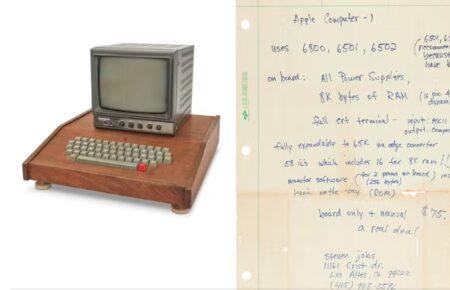 Apple Computer - 1
uses 6800, 6501, 6502
on board: All Power Supplies,
8K bytes of RAM (16 pin 4
full crt terminal - input: ASCII
output: compo
fully expandable to 65K via edge connector
58 ic's which includes 16 for 8K ram !!
monitor software (for 2 proms on board)
(256 bytes)
(ROM)
board only + manual $75.
a real deal
steven jobs
11161 Crist dr.
Los Altos, Ca
(415)